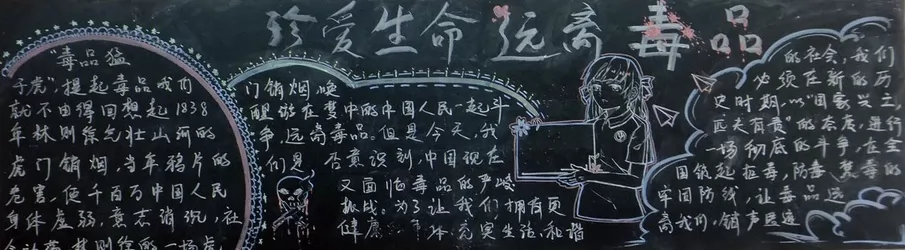 珍爱生命 远离毒品
毒品猛
于虎"，提起毒品我们
就不由得回想起1838
年林则徐气壮山河的
虎门销烟，当年鸦片的
危害，使千百万中国人民
身体虚弱，意志消沉，社
林则徐的一场虎
门销烟，唤
醒仍在梦中的中国人民一起斗
争，远离毒品。但是今天，我
们是否意识到，中国现在
又面临毒品的严峻
挑战。为了让我们拥有更
健康 生活，和谐
的社会，我们
必须在新的历
史时期，以"国家兴亡，
匹夫有责"的态度，进行
一场彻底的斗争，在全
国筑起拒毒，防毒，禁毒的
牢固防线，让毒品远
离我们，销声匿迹